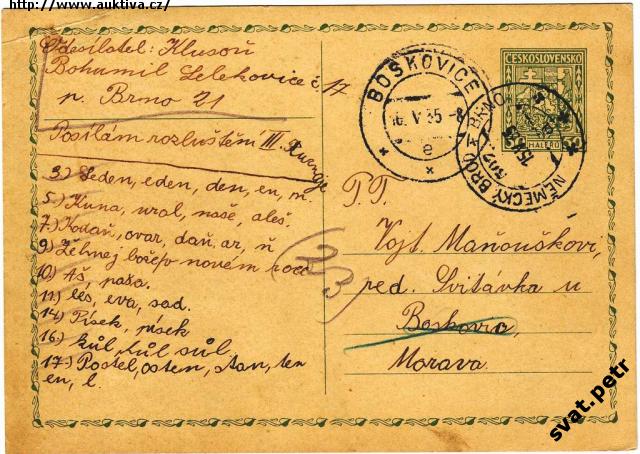 http://www.auktiva.cz/
Odesílatel: Klusoň
Bohumil Lelekovice č. 17
p. Brno 21
Posílám rozluštění III.
3.) Leden, eden, den, en, n.
5.) Kuna, ural, naše, aleš.
7.) Kodaň, ovar, daň, ar, ň
9.) Žehnej bože v novém roce
10.) Aš, paša.
11.) les, eva, sad.
14.) Písek, písek
16.) kůl, hůl sůl
17.) Postel, osten, stan, ten
en, l.
(23)
BOSKOVICE
16. V 35 - 8
e
ČESKOSLOVENSKO
50 HALÉŘŮ
NĚMECKÝ BROD BRNO
P. T.
Vojt. Maňouškovi,
red. Svitávka u
Boskovic,
Morava.
svat.petr